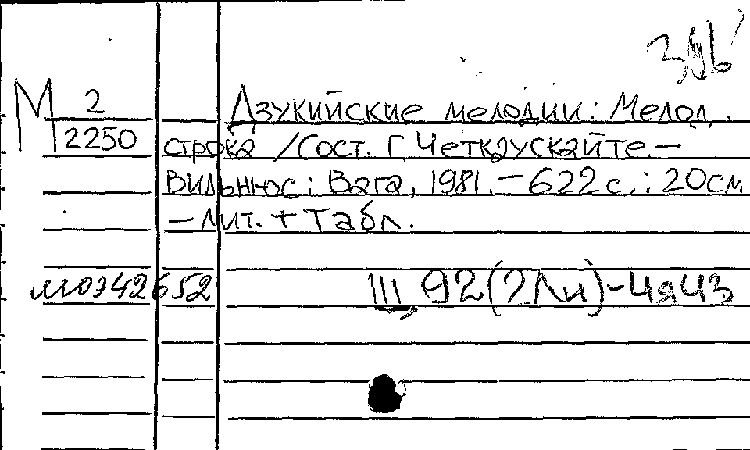 М 2
2250
Дзукийские мелодии: Мелод.
строка /Сост. Г. Четкаускайте.—
Вильнюс: Вага, 1981.—622с.: 20см
—Лит.+Табл.
мо942652
Щ92(2Ли)-4я43